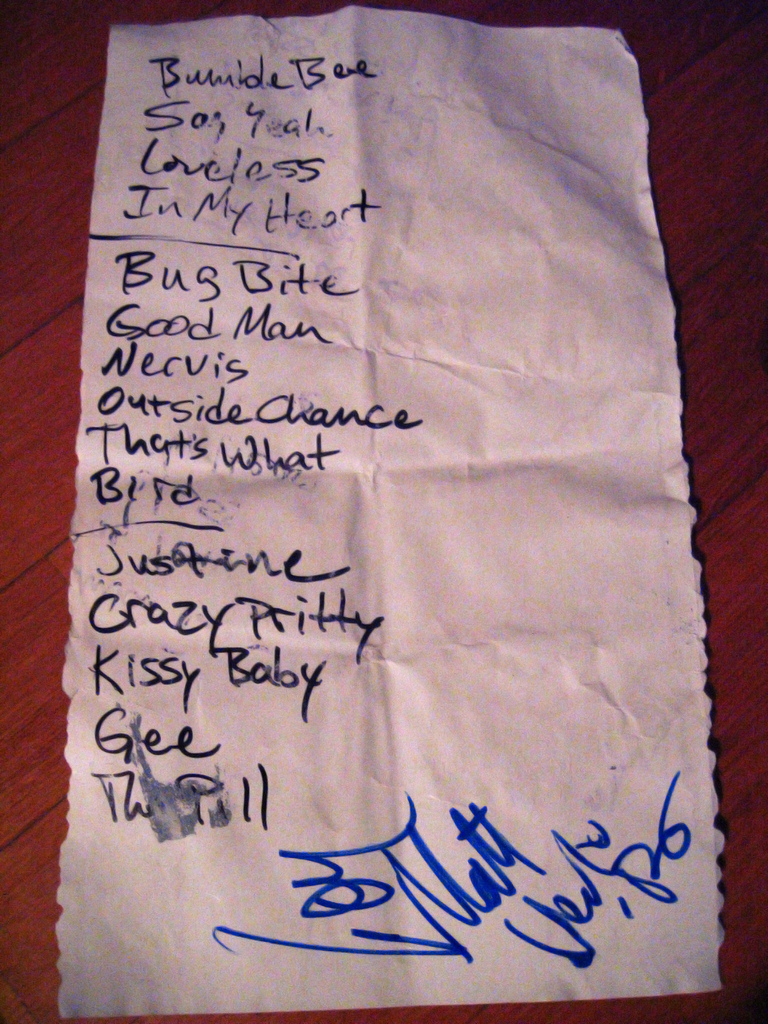 Bumble Bee
Say Yeah
Loveless
In My Heart
Bug Bite
Good Man
Nervis
Outside Chance
Thats What
Bird
Justine
Crazy Pritty
Kissy Baby
Gee
The Pill
Matt